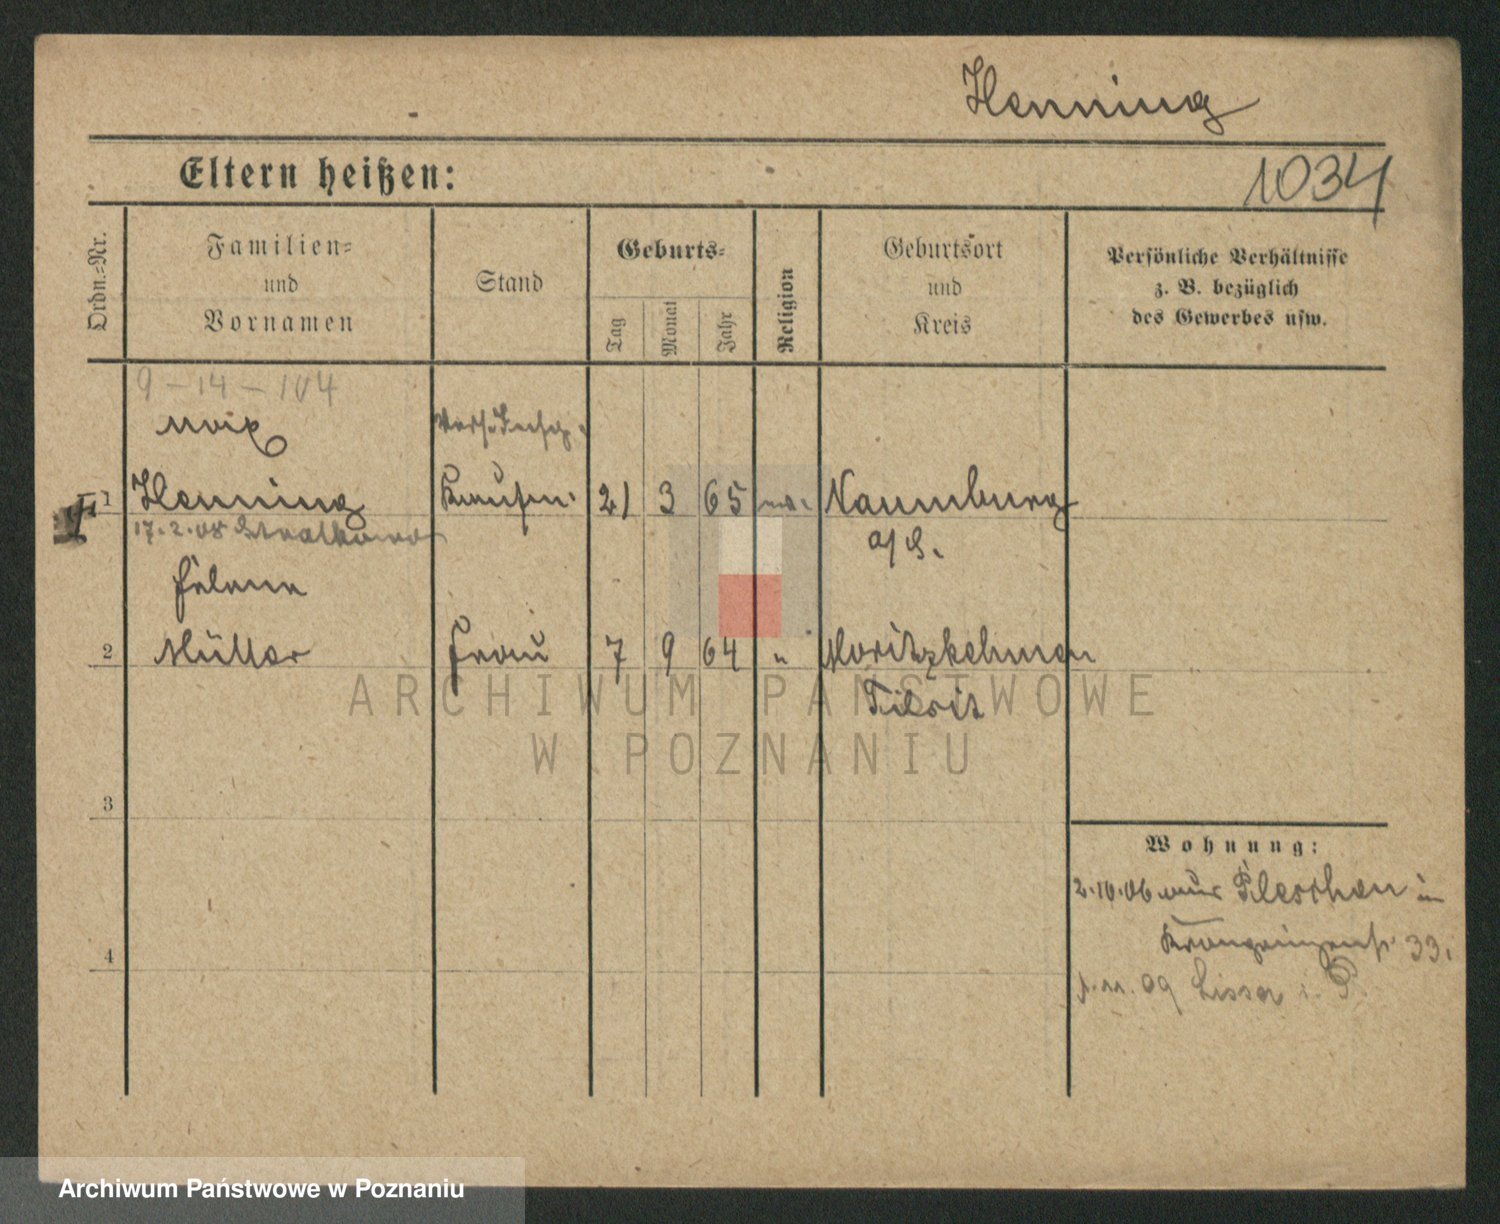 Henning
Eltern heißen:
1034
Ordn.-Nr.
Familien-
und
Vornamen
Stand
Geburts-
Tag
Monat
Jahr
Religion
Geburtsort
und
Kreis
Persönliche Verhältnisse
z. B. bezüglich
des Gewerbes usw.
9 – 14 – 104
Max
1 Henning 21 3 65 Naumburg
17.2.08 Stralkowo
a/S.
Helene
2 Müller Frau 7 9 64 " Moritzkehmen
Tilsit
ARCHIWUM PAŃSTWOWE
W POZNANIU
3
Wohnung:
2.10.06 aus Pleschen in
Kronprinzenstr. 33.
4
1.11.09 Lissa i. P.
Archiwum Państwowe w Poznaniu